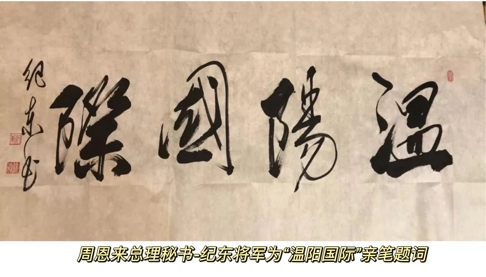 溫陽國際
纪东书
周恩来总理秘书-纪东将军为“温阳国际”亲笔题词